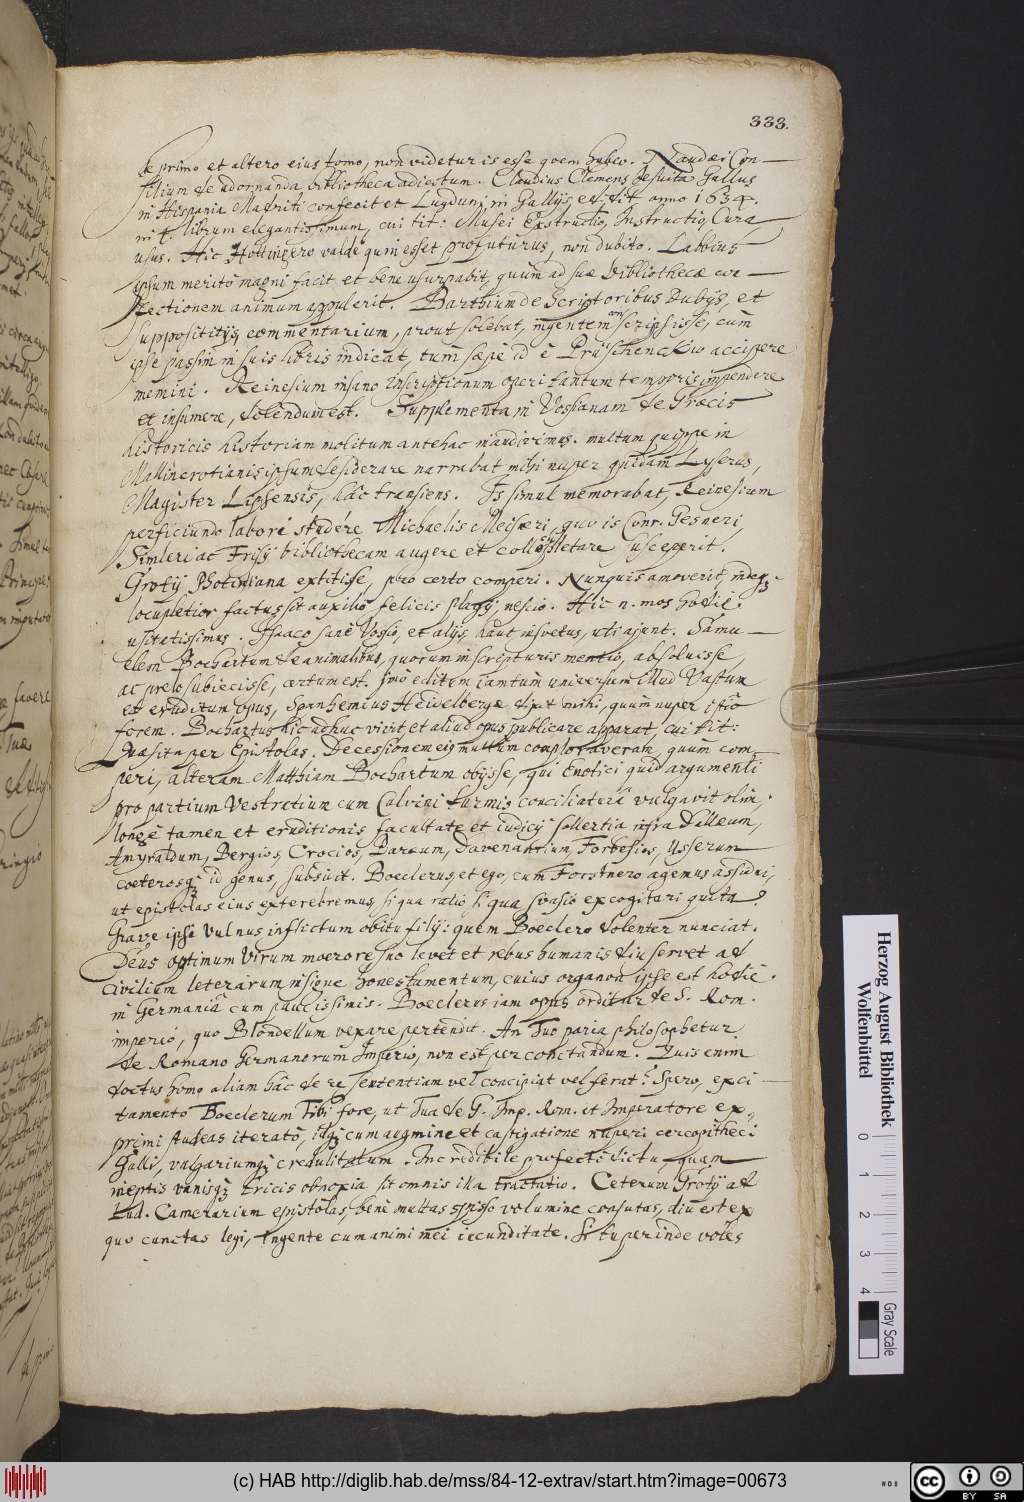 333.
de primo et altero eius tomo, non videtur is esse quem habeo. Naudæi Con-
silium de adornanda bibliotheca adiectum. Claudius Clemens Jesuita Gallus
in Hispania Madriti confecit et Lugduni in Gallijs edidit anno 1634.
in 4. librum elegantissimum, cui tit: Musei Exstructio, Instructio, Cura
usus. Hic Hottingero valde quin esset profuturus, non dubito. Labbius
ipsum merito magni facit et bene usurpabit, quum ad suæ bibliothecæ con-
fectionem animum appulerit. Barthium de Scriptoribus Dubijs, et
Supposititijs commentarium, prout solebat, ingentem scripsisse, cum
ipse passim in suis libris indicat, tum sæpe id è Prüschenckio accipere
memini. Reinesium insano Inscriptionum operi tantum temporis impendere
et insumere, dolendum est. Supplementa in Vossianam de Græcis
historicis historiam molitum antehac inaudivimus. multum quippe in
Mallincrotianis ipsum desiderare narrabat mihi nuper quidam Lyserus,
Magister Lipsensis, hâc transiens. Is simul memorabat, Reinesium
perficiundo labori studere Michaelis Neiseri, quo is Conr. Gesneri
Simleri ac Frisij bibliothecam augere et completare susceperit.
Grotij Photiniana extitisse, pro certo comperi. Nunquis amoverit, indeq;
locupletior factus sit auxilio felicis plagij, nescio. Hic n. mos hodie
usitatissimus. Isaaco sanè Vossio, et alijs, haut insvetus, uti ajunt. Samu-
elem Bochartum de animalibus, quorum in scripturis mentio, absolvisse,
ac prelo subiecisse, certum est. Imò editum iam tum universum illud Vastum
et eruditum opus, Spanhemius Heidelbergæ dixit mihi, quum nuper istic
forem. Bochartus hic adhuc vivit, et aliud opus publicare apparat, cui tit:
Quæsita per Epistolas. Decessionem eius multum comploraveram, quum com-
peri, alteram Matthiam Bochartum obijsse, qui Enotici quid argumenti
pro partium Vestratium cum Calvini turmis conciliaturâ vulgavit olim;
longè tamen et eruditionis facultate et iudicij sollertia infra Dallæum,
Amyraldum, Bergios, Crocios, Paræum, Davenantium, Forbesios, Usserum
cœterosq; id genus, subsidit. Boeclerus, et ego, cum Forstnero agemus assidui,
ut epistolas eius exterebremus, si qua ratio siqua svasio excogitari quita?
Grave ipse vulnus inflictum obitu filij: quem Boeclero dolenter nunciat.
Deus optimum Virum moerore suo levet et rebus humanis diu servet ad
civilium leterarum insigne honestamentum, cuius organon ipse est hodie
in Germaniâ cum paucissimis. Boeclerus iam opus orditur de S. Rom.
imperio, quo Blondellum vexare pertendit. An Tuo paria philosophetur
de Romano Germanorum Imperio, non est percontandum. Quis enim
doctus homo aliam hâc de re sententiam vel concipiat vel ferat? Spero, exci-
tamento Boeclerum Tibi fore, ut Tua de G. Imp. Rom. et Imperatore ex-
primi studeas iterato, illaq; cum augmine et castigatione nuperi cercopitheci
Galli, vulgariumq; credulitatum. Incredibile profecto dictu, quam
ineptis vanisq; tricis obnoxia sit omnis illa tractatio. Ceterum Grotij ad
Lud. Camerarium epistolas, bene multas spisso volumine consutas, diu est ex
quo cunctas legi, ingente cum animi mei iucunditate. Si tu perinde voles
Herzog August Bibliothek
Wolfenbüttel
0 1 2 3 4
Gray Scale
(c) HAB http://diglib.hab.de/mss/84-12-extrav/start.htm?image=00673
cc BY SA